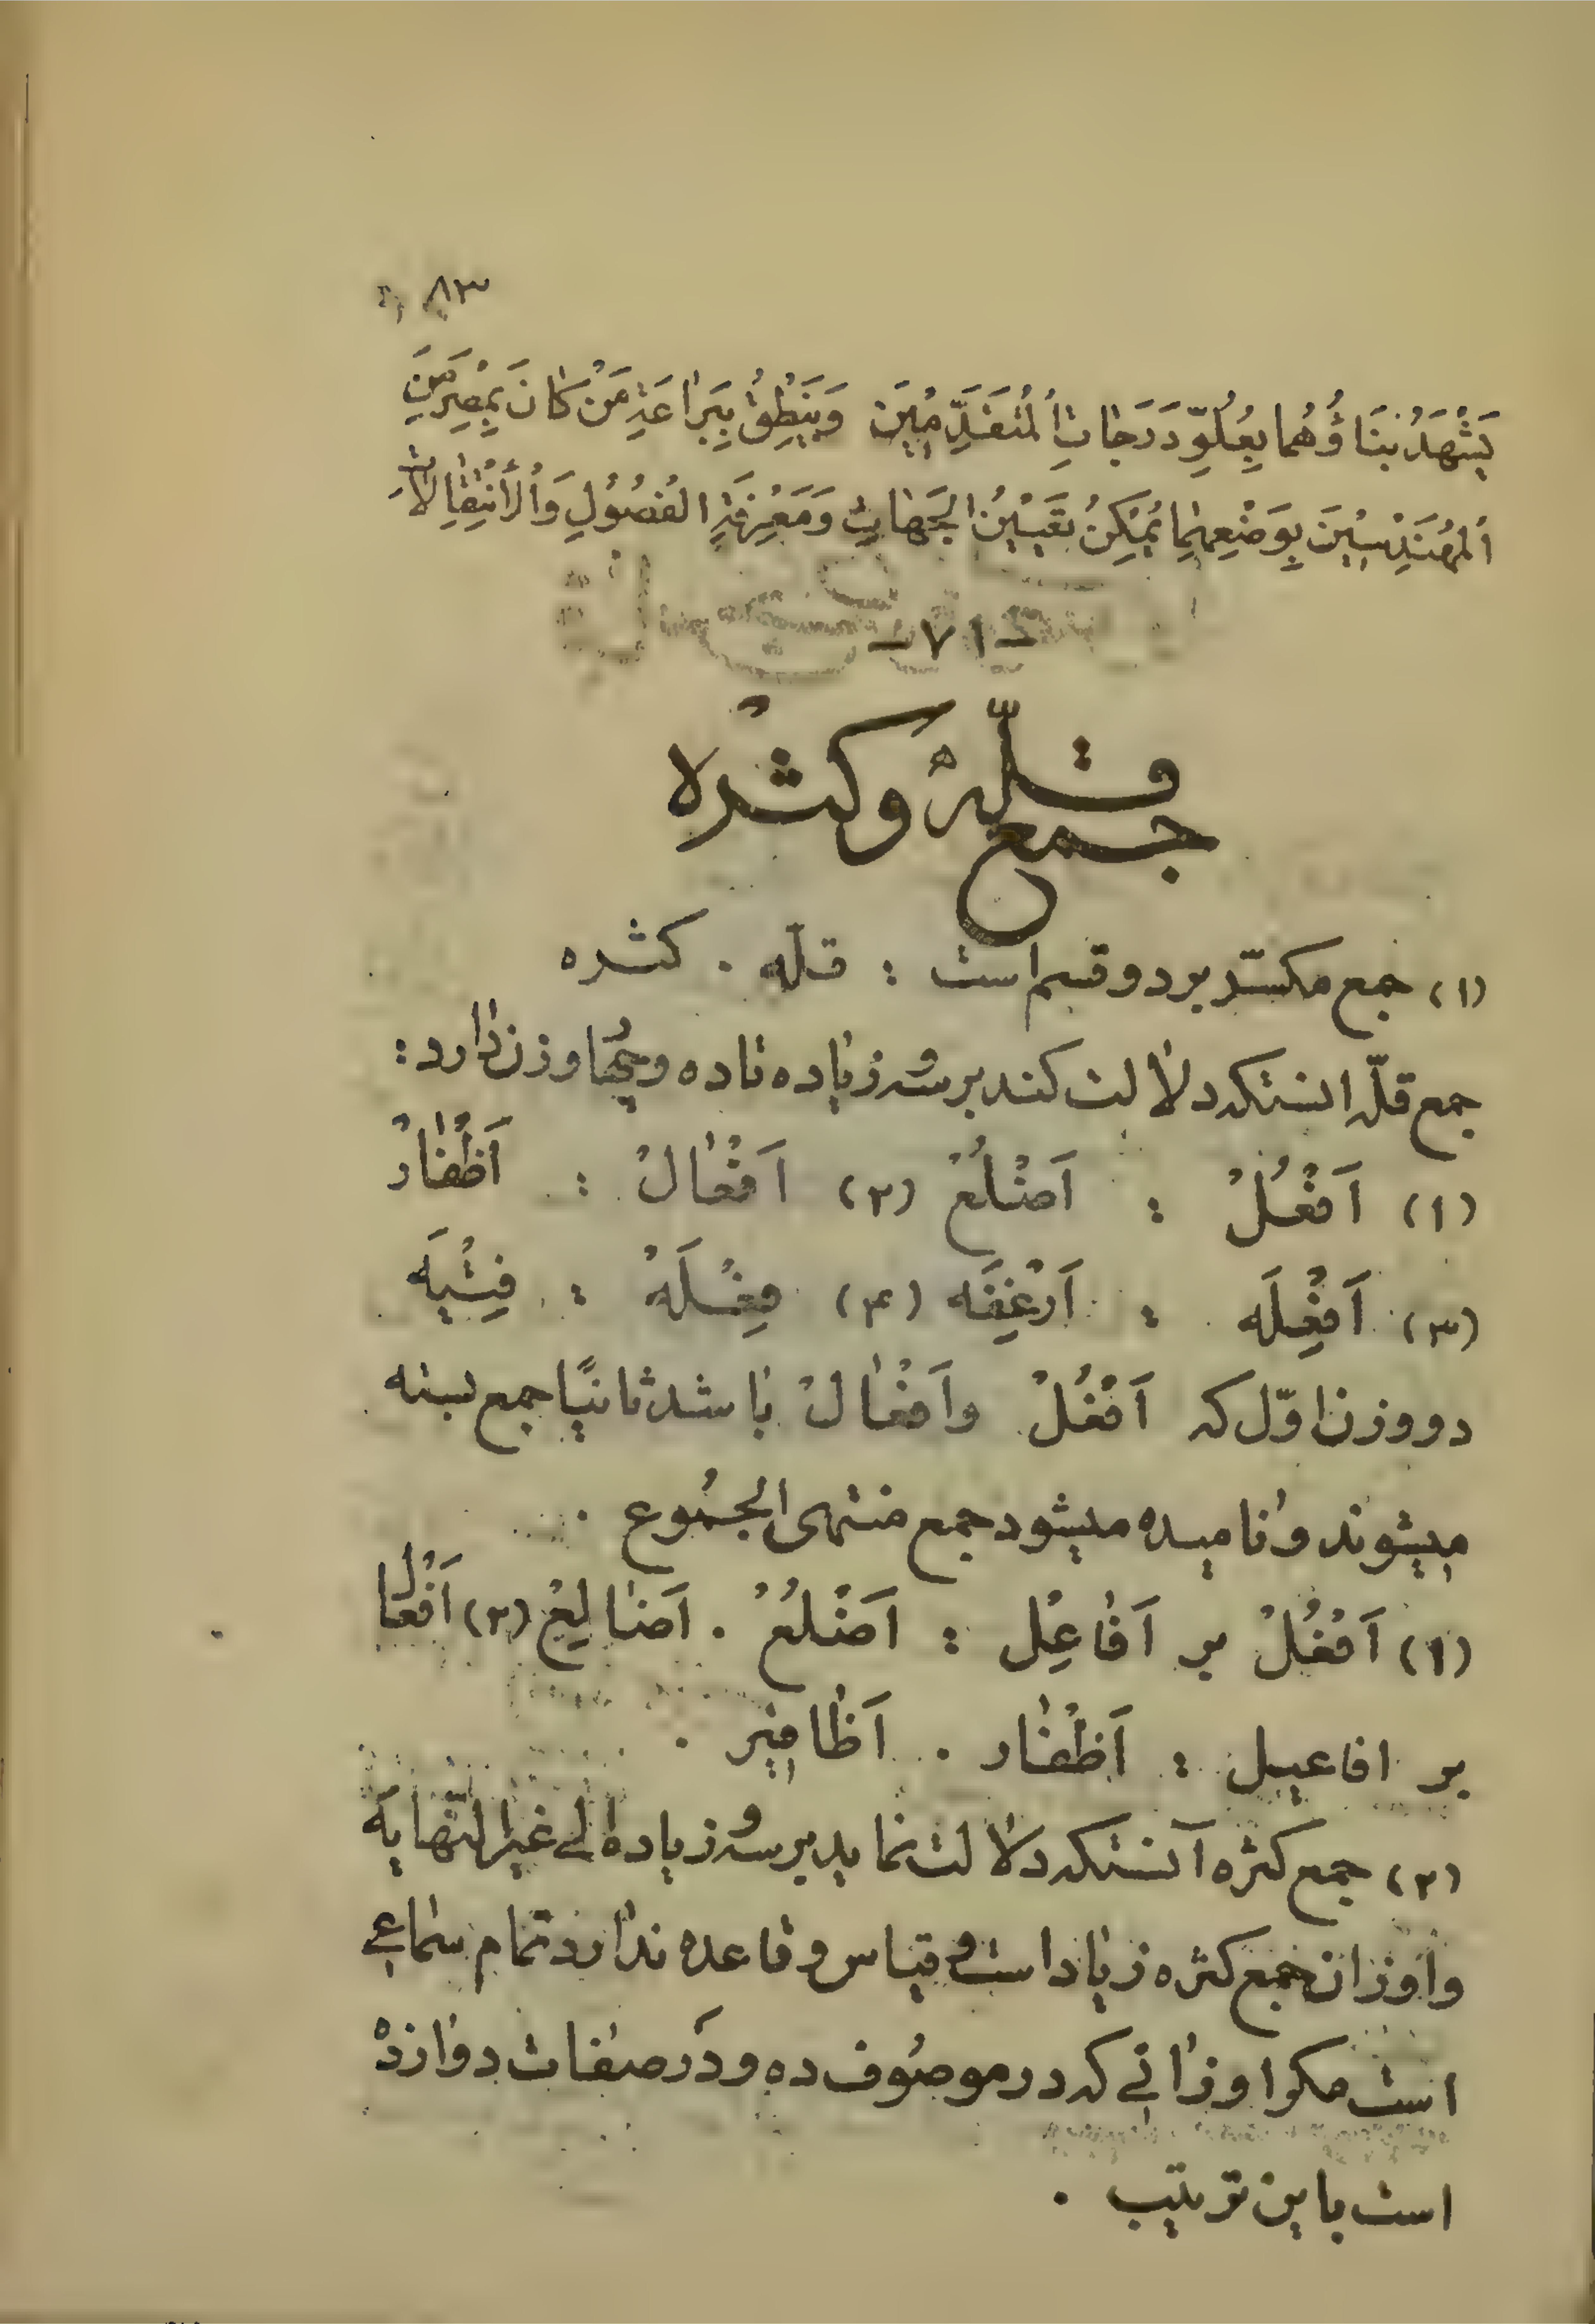 ۸۳
یَشْهَدُ بِنَاؤُهُمَا بِعُلُوِّ دَرَجَاتِ اْلمُتَقَدِّمِیْنَ وَیَنْطِقُ بِبَرَاعَةِ مَنْ کَانَ بِمِصْرَ مِنَ
اَلمُهَنْدِسِیْنَ بِوَضْعِهِمَا یُمْکِنُ تَعْیِیْنُ الجَهَاتِ وَمَعْرِفَةِ الفُصُوْلِ وَاْلأِنْتِقَالاَتِ
-۷۱-
جمع قلّهْ وکثْره
(۱) جمع مکسّر بر دو قسم است : قلّه . کثره
جمع قلّه انستکه دلالت کند بر سه و زیاده تا ده و چهٰار وزن دٰارد :
(۱) اَفْعُلْ : اَضْلُعْ (۲) اَفْعٰالْ : اَظْفٰارْ
(۳) اَفْعِلَه : اَرْغِفَه (۴) فِعْلَهْ : فِتْیَه
دو وزن اوّل که اَفْعُلْ و اَفْعٰالْ بٰاشد ثانیًا جمع بسته
میشوند و نٰامیده میشود جمع منتهی الجُمُوع .
(۱) اَفْعُلْ بر اَفٰاعِلْ : اَضْلُعْ . اَضٰالِعْ (۲) اَفْعٰالْ
بر افاعیل : اَظْفٰار . اَظٰافِیر .
(۲) جمع کثره آنستکه دلالت نماید بر سه و زیاده الی غیر النّهٰایَه
و اوزان جمع کثره زیٰاد است و قیاس و قاعده ندٰارد تمٰام سمٰاعی
است مکر اوزٰانی که در موصُوف ده و دَر صفٰات دوٰازدهْ
است باین ترتیب .